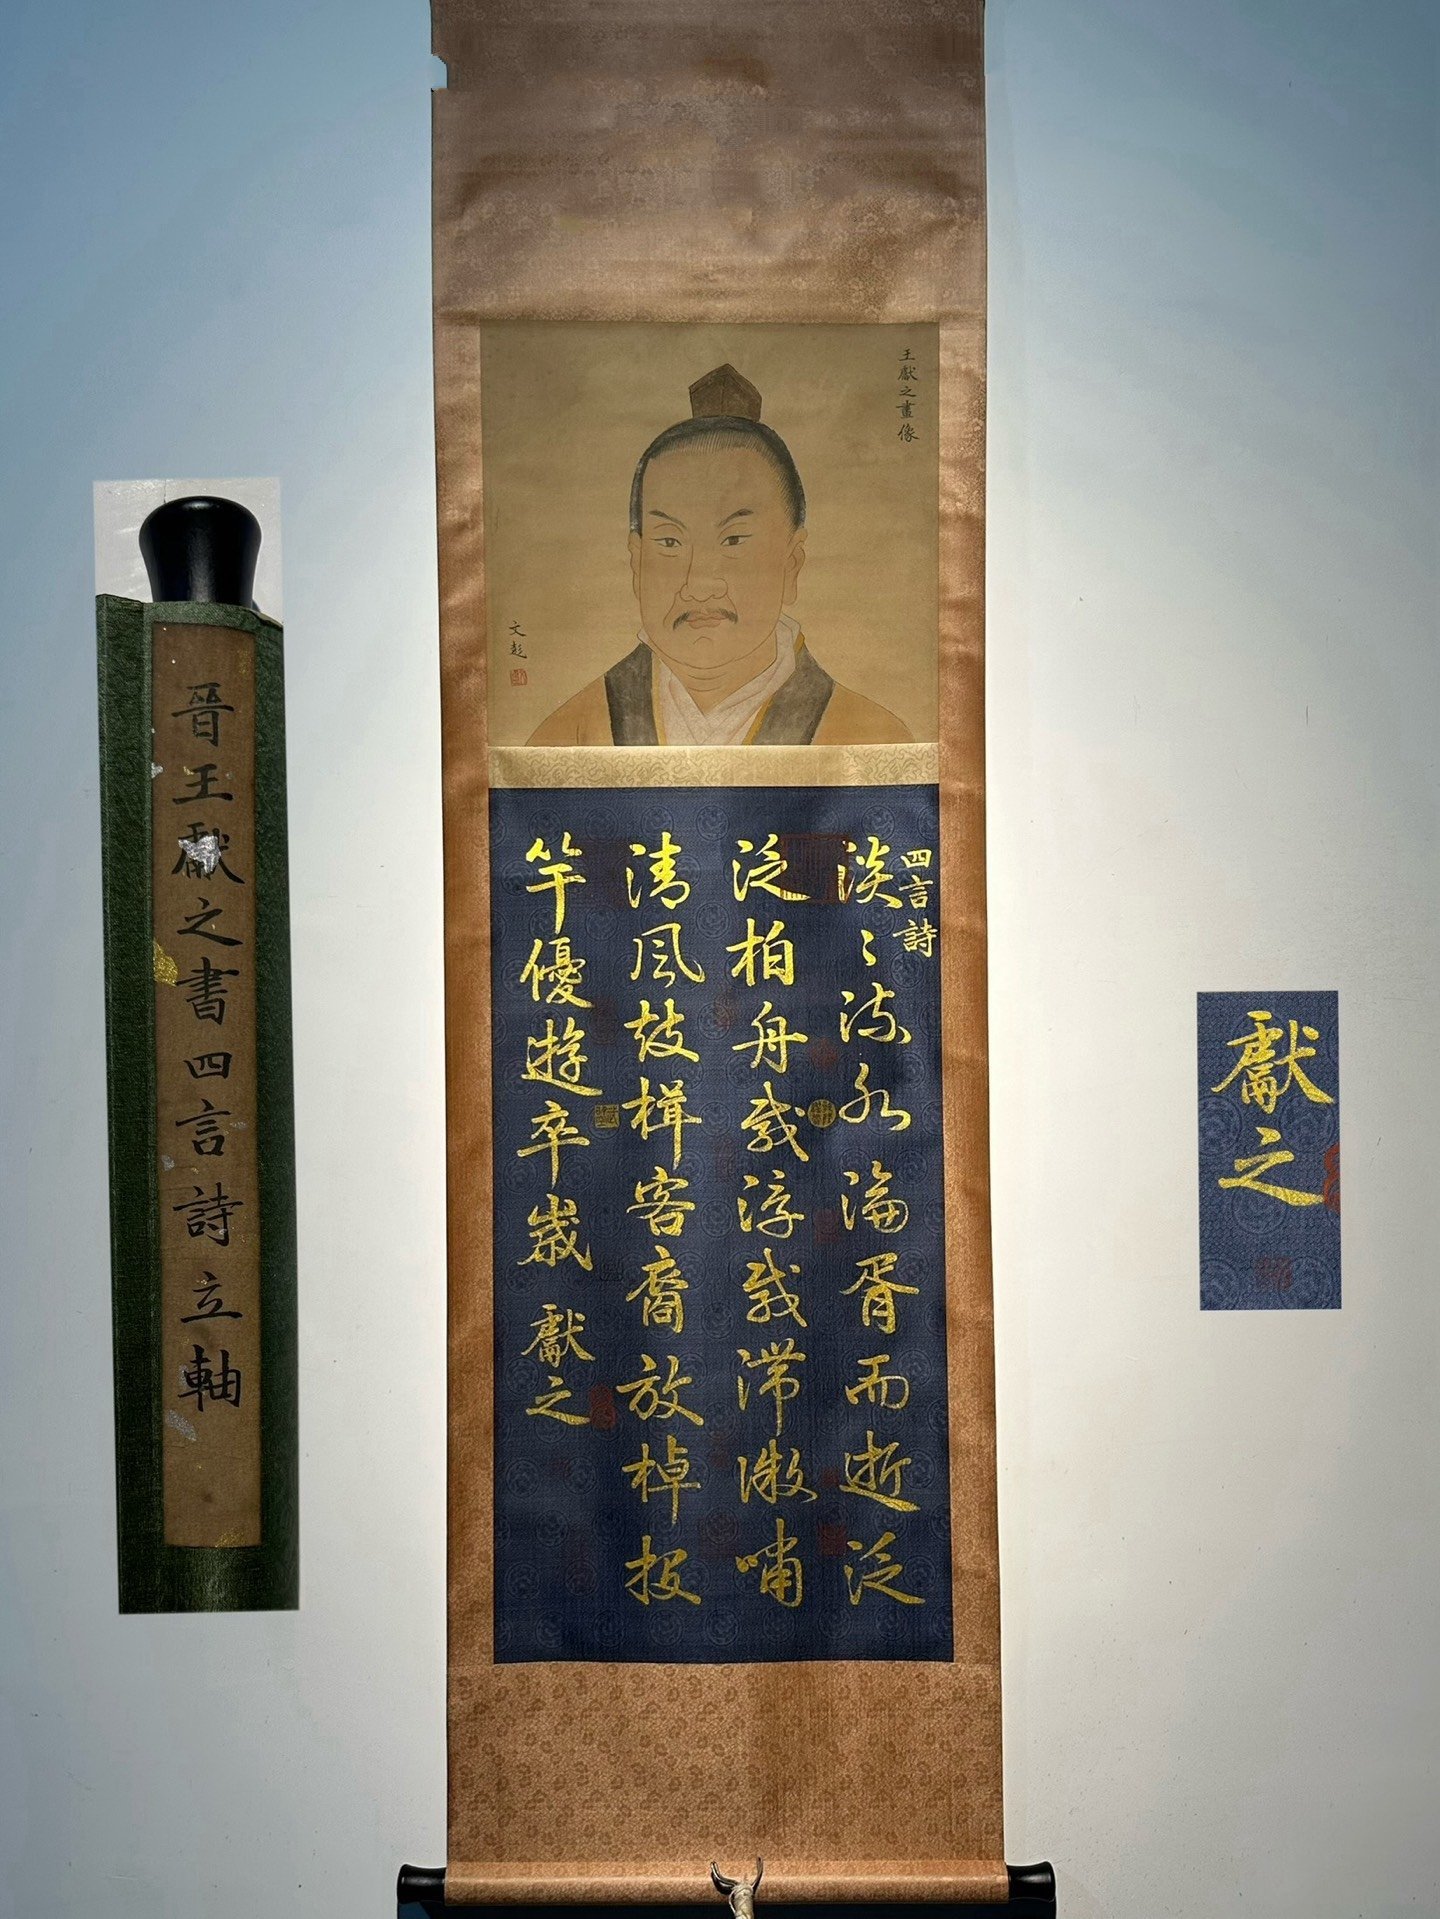 王獻之畫像
文彭
四言詩
淡〻流水淪胥而逝泛
泛柏舟載浮載滯漵嘯
清風鼓楫容裔放棹投
竿優遊卒歲 獻之
晉王獻之書四言詩立軸
獻之